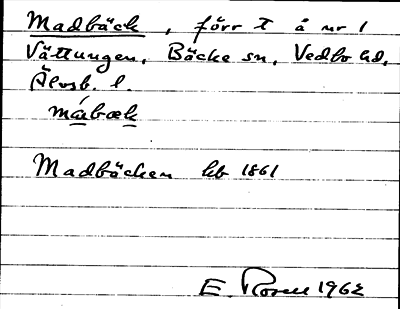 Madbäck, förr t å nr 1
Vättungen, Bäcke sn, Vedbo hd,
Älvsb. l.
mábæk
Madbäcken hb 1861
E. Rosell 1962